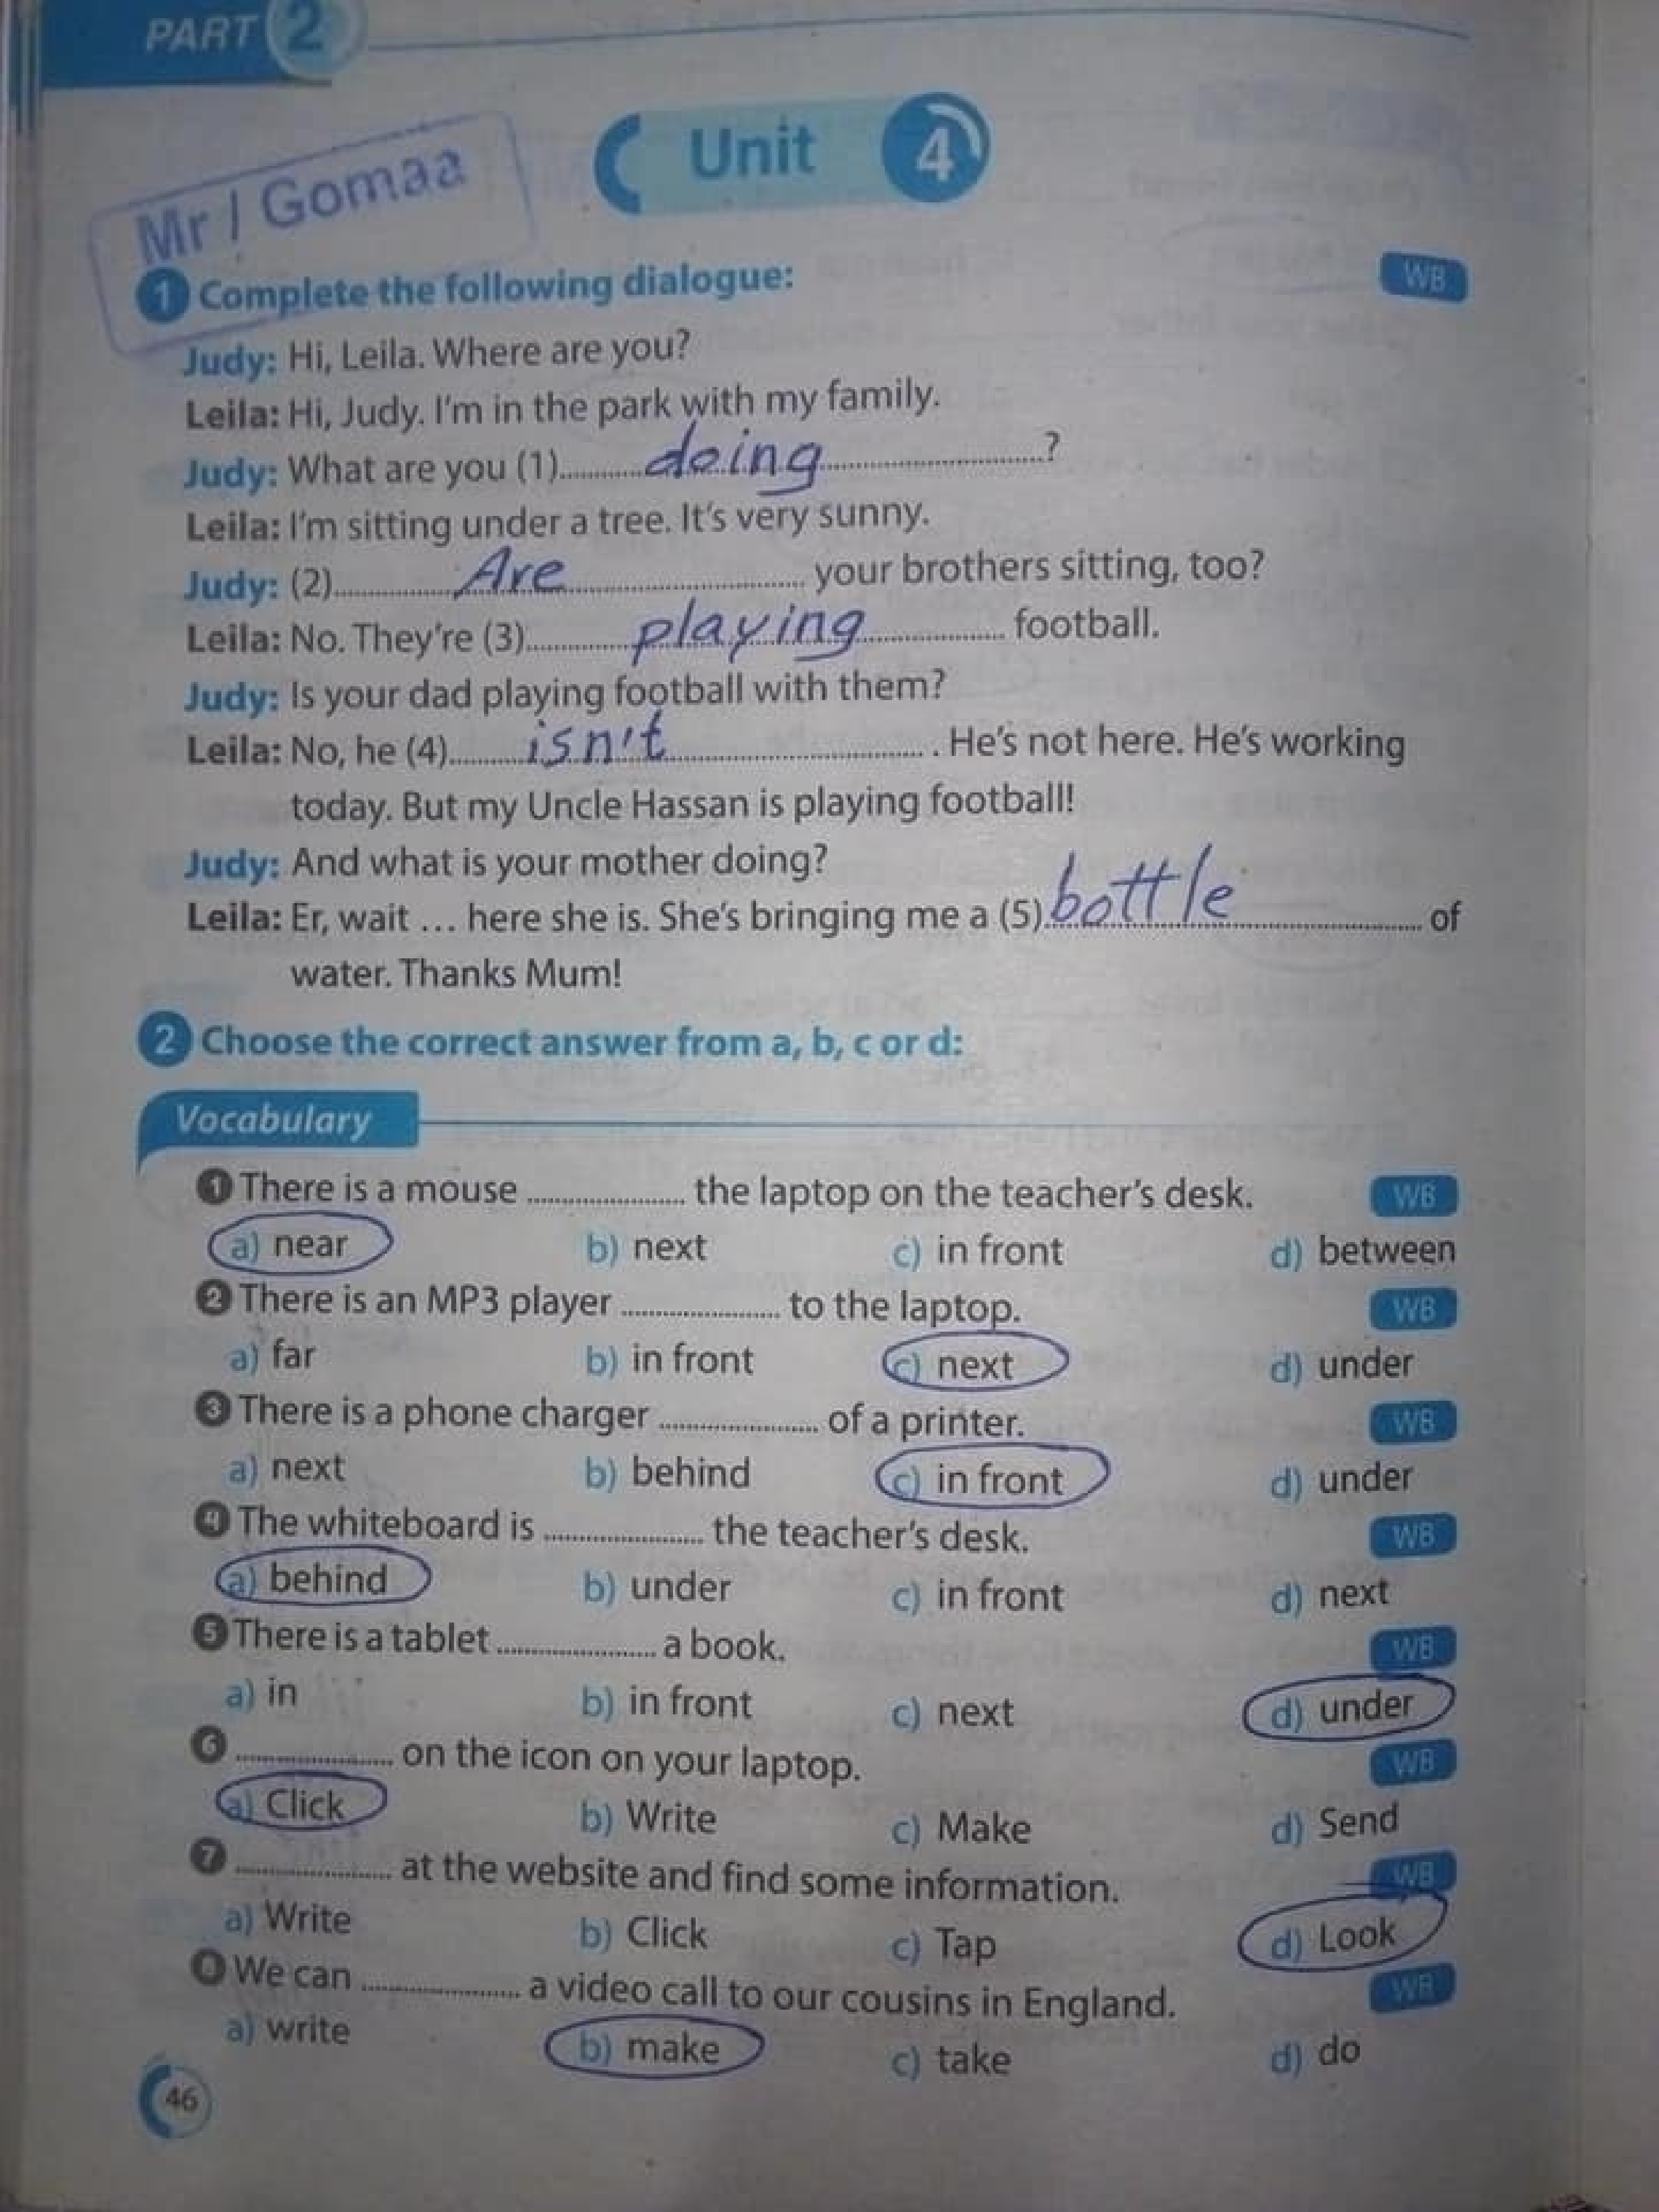 PART 2
Unit 4
Mr / Gomaa
1 Complete the following dialogue: WB
Judy: Hi, Leila. Where are you?
Leila: Hi, Judy. I'm in the park with my family.
Judy: What are you (1)........doing........................?
Leila: I'm sitting under a tree. It's very sunny.
Judy: (2)............Are........................ your brothers sitting, too?
Leila: No. They're (3)..........playing.............. football.
Judy: Is your dad playing football with them?
Leila: No, he (4)........isn't........................ . He's not here. He's working
today. But my Uncle Hassan is playing football!
Judy: And what is your mother doing?
Leila: Er, wait ... here she is. She's bringing me a (5).bottle.................... of
water. Thanks Mum!
2 Choose the correct answer from a, b, c or d:
Vocabulary
1 There is a mouse .................... the laptop on the teacher's desk. WB
a) near b) next c) in front d) between
2 There is an MP3 player .................... to the laptop. WB
a) far b) in front c) next d) under
3 There is a phone charger .................... of a printer. WB
a) next b) behind c) in front d) under
4 The whiteboard is .................... the teacher's desk. WB
a) behind b) under c) in front d) next
5 There is a tablet .................... a book. WB
a) in b) in front c) next d) under
6 .................... on the icon on your laptop. WB
a) Click b) Write c) Make d) Send
7 .................... at the website and find some information. WB
a) Write b) Click c) Tap d) Look
8 We can .................... a video call to our cousins in England. WB
a) write b) make c) take d) do
46